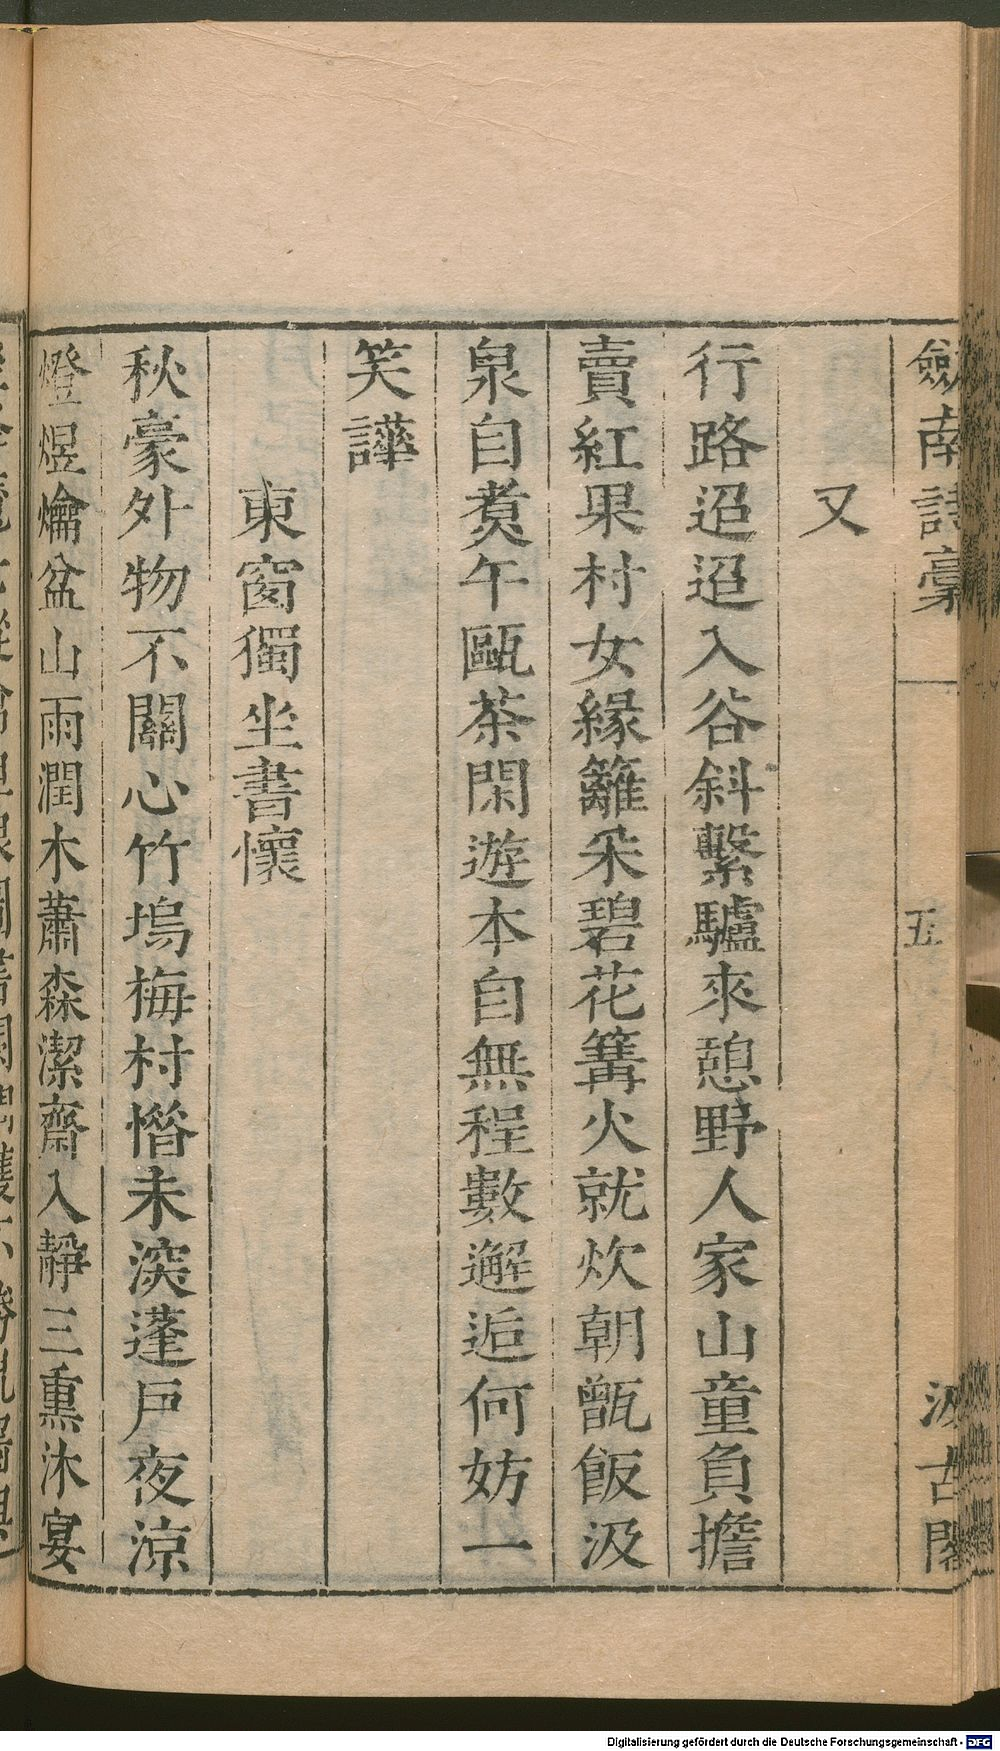 劒南詩藁
五
汲古閣
又
行路迢迢入谷斜繫驢來憩野人家山童負擔
賣紅果村女緣籬采碧花篝火就炊朝甑飯汲
泉自煑午甌茶閑遊本自無程數邂逅何妨一
笑譁
東窗獨坐書懷
秋豪外物不關心竹塢梅村㫺未深蓬戶夜涼
燈煜爚盆山雨潤木蕭森潔齋入靜三熏沐宴
Digitalisierung gefördert durch die Deutsche Forschungsgemeinschaft - DFG